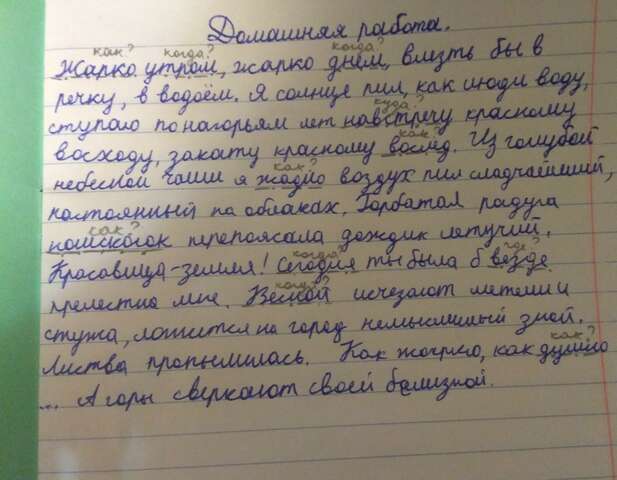 Домашняя работа.
как? когда? когда?
Жарко утром, жарко днём, влезть бы в
речку, в водоём. Я солнце пил, как люди воду,
куда?
ступаю по нагорьям лет навстречу красному
как?
восходу, закату красному вослед. Из голубой
как?
небесной чаши я жадно воздух пил сладчайший,
настоянный на облаках. Горбатая радуга
как?
наискосок перепоясала дождик летучий.
когда? где?
Красавица-земля! Сегодня ты была б везде
когда?
прелестна мне. Весной исчезают метели и
стужа, ложится на город немыслимый зной.
как?
Листва пропылилась. Как жарко, как душно
... А горы сверкают своей белизной.